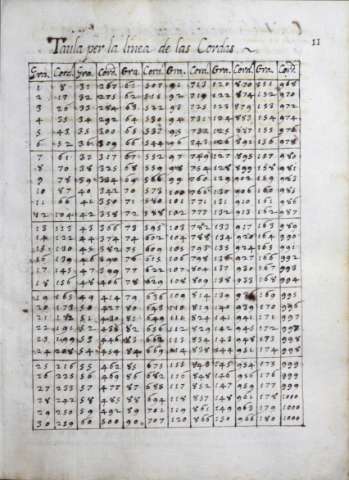 Taula per la linea de las Cordas
11
Gra. Cord. Gra. Cord. Gra. Cord. Gra. Cord. Gra. Cord. Gra. Cord.
1 8 31 267 61 507 91 713 121 870 151 968
2 17 32 275 62 515 92 719 122 874 152 970
3 26 33 284 63 522 93 725 123 879 153 972
4 35 34 292 64 530 94 731 124 883 154 974
5 43 35 300 65 537 95 732 125 887 155 976
6 52 36 309 66 544 96 743 126 891 156 978
7 61 37 317 67 552 97 749 127 895 157 980
8 70 38 325 68 559 98 754 128 899 158 981
9 78 39 334 69 566 99 760 129 902 159 983
10 87 40 342 70 573 100 766 130 906 160 985
11 66 41 350 71 580 101 771 131 910 161 986
12 104 42 358 72 588 102 777 132 913 162 987
13 113 43 366 73 595 103 782 133 917 163 989
14 122 44 374 74 602 104 788 134 920 164 990
15 130 45 382 75 609 105 793 135 924 165 991
16 139 46 390 76 615 106 798 136 927 166 992
17 145 47 399 77 622 107 804 137 930 167 993
18 156 48 406 78 629 108 809 138 933 168 994
19 165 49 414 79 636 109 814 139 169 995
20 173 50 422 80 643 110 819 140 939 170 996
21 182 51 430 81 649 111 824 141 942 171 997
22 191 52 438 82 656 112 829 142 945 172 997
23 199 53 446 83 662 113 834 143 948 173 998
24 208 54 454 84 669 114 838 144 951 174 999
25 216 55 462 85 675 115 843 145 954 175 999
26 225 56 469 86 682 116 848 146 956 176 999
27 233 57 477 87 688 117 852 147 959 177 999
28 242 58 485 88 694 118 857 148 961 178 1000
29 250 59 492 89 701 119 861 149 963 179 1000
30 259 60 500 90 707 120 866 150 966 180 1000